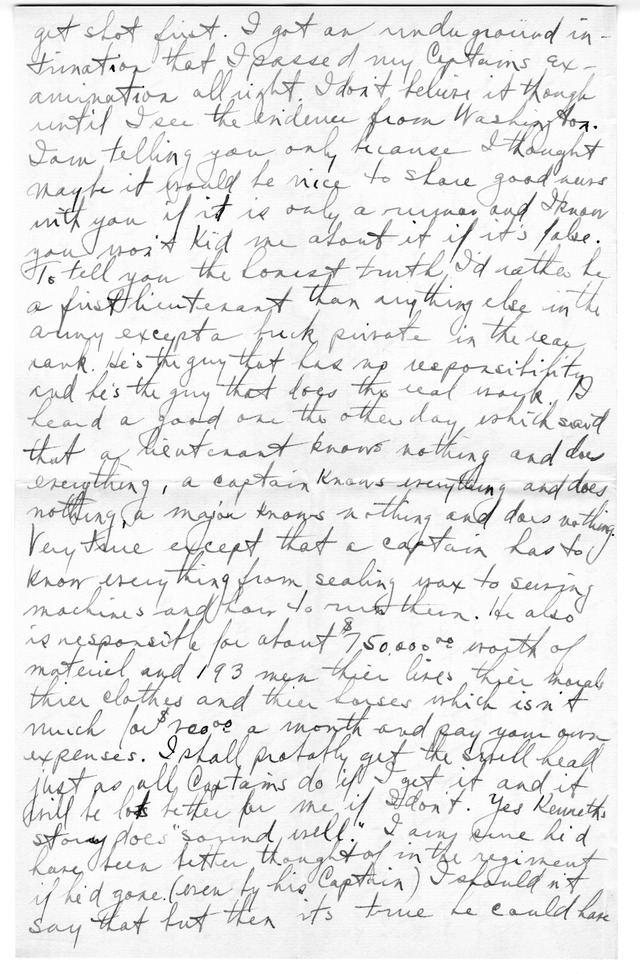 get shot first. I got an underground in-
timation that I passed my Captains ex-
amination all right I don't believe it though
until I see the evidence from Washington.
I am telling you only because I thought
maybe it would be nice to share good news
with you if it is only a rumor and I know
you won't kid me about it if it's false.
To tell you the honest truth I'd rather be
a first lieutenant than anything else in the
army except a buck private in the rear
rank. He's the guy that has no responsibility
and he's the guy that does the real work. I
heard a good one the other day which said
that a lieutenant knows nothing and does
everything, a captain knows everything and does
nothing, a major knows nothing and does nothing.
Very true except that a captain has to
know everything from sealing wax to sewing
machines and how to run them. He also
is responsible for about $750,000.00 worth of
materiel and 193 men thier lives thier morals
thier clothes and thier horses which isn't
much for $200.00 a month and pay your own
expenses. I shall probably get the swell head
just as all Captains do if I get it and it
will be lots better for me if I don't. Yes Kenneth's
story does "sound well." I am sure he'd
have been better thought of in the regiment
if he'd gone. (even by his Captain) I shouldn't
say that but then it's true he could have